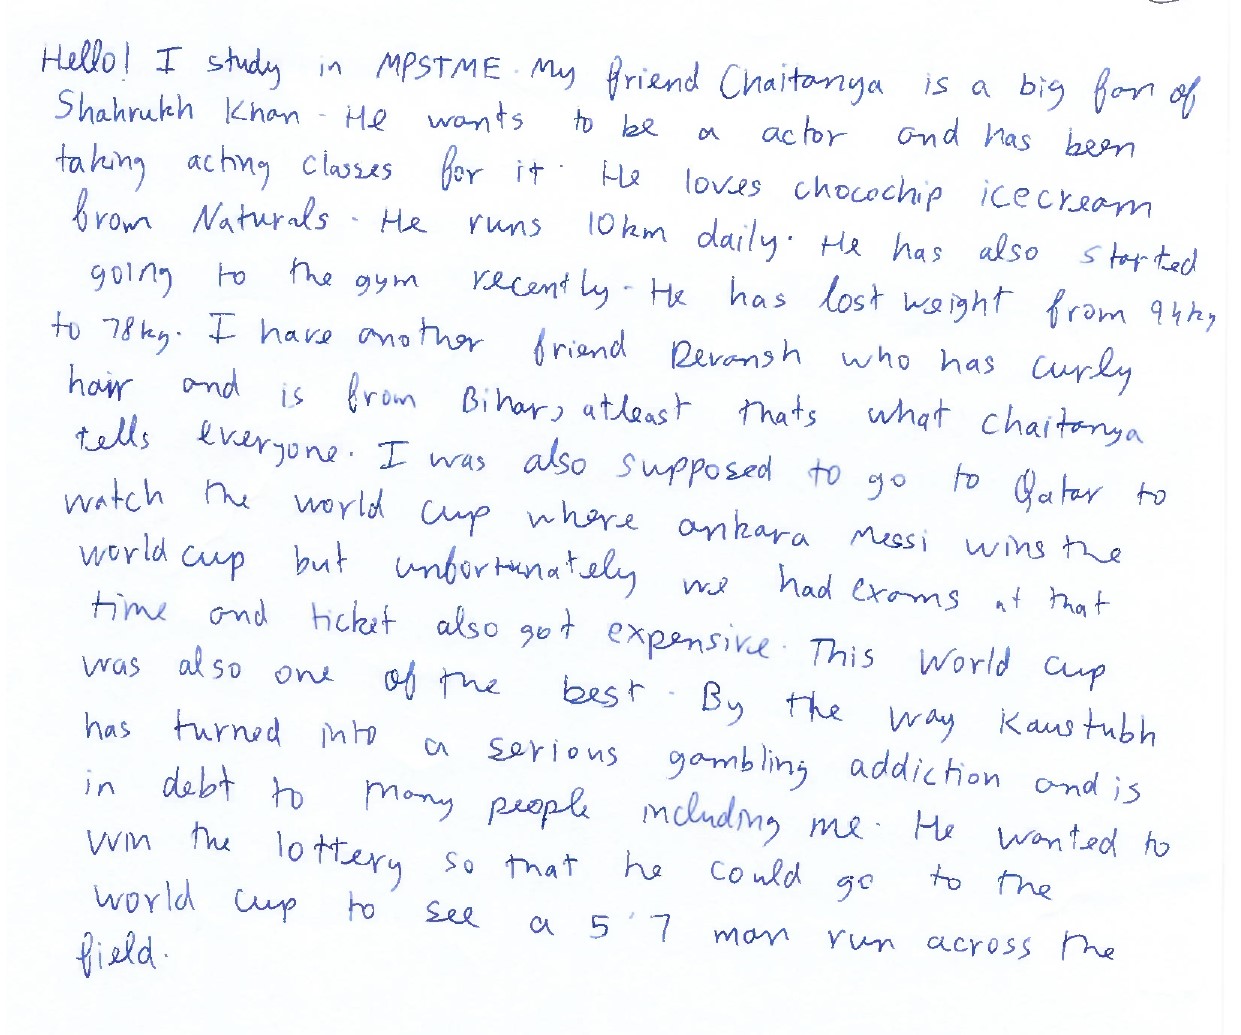 Hello! I study in MPSTME. My friend Chaitanya is a big fan of
Shahrukh Khan. He wants to be a actor and has been
taking acting classes for it. He loves chocochip icecream
from Naturals. He runs 10km daily. He has also started
going to the gym recently. He has lost weight from 94kg
to 78kg. I have another friend Devansh who has curly
hair and is from Bihar, atleast thats what chaitanya
tells everyone. I was also supposed to go to Qatar to
watch the world cup where ankara Messi wins the
world cup but unfortunately we had exams at that
time and ticket also got expensive. This World cup
was also one of the best. By the way Kaustubh
has turned into a serious gambling addiction and is
in debt to many people including me. He wanted to
win the lottery so that he could go to the
world cup to see a 5'7 man run across the
field.